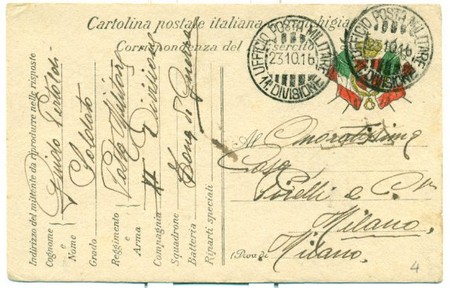 Cartolina postale italiana in franchigia
Corrispondenza del R. Esercito
UFFICIO POSTA MILITARE
23.10.16
DIVISIONE
UFFICIO POSTA MILITARE
23.10.16
DIVISIONE
Indirizzo del mittente da riprodurre nelle risposte
Cognome Guido
e
Nome Soldato
Grado
Reggimento Posta Militare
e
Arma
Compagnia Divisione
Squadrone Zona di Guerra
Batteria
Riparti speciali
All' Onoratissima
Casa
Pirelli e
Milano
(Prov. di Milano.
4